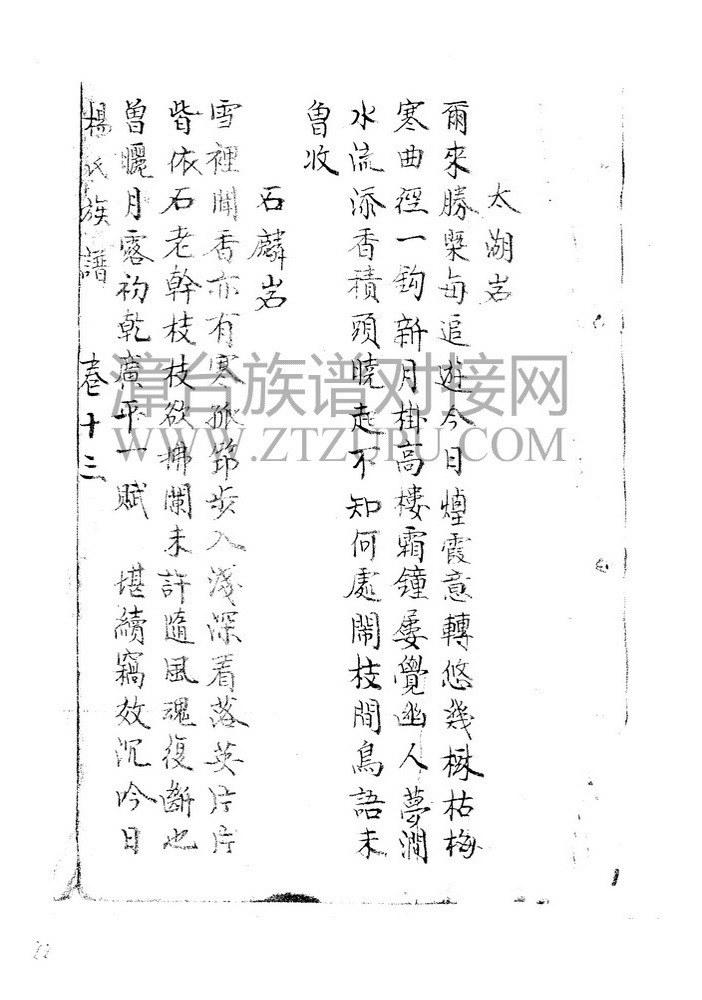 太湖岩
爾來勝槩每追遊今日煙霞意轉悠幾樹枯梅
寒曲徑一鈎新月掛高樓霜鐘屡覺幽人夢澗
水流添香積頭曉起不知何處鬧枝間鳥語未
曾收
石麟岩
雪裡聞香亦有寒孤筇步入淺深看落英片片
皆依石老幹枝枝欲拂闌未許隨風魂復斷也
曾曬月露初乾廣平一賦 堪續竊效沉吟日
楊氏族譜 卷十三
漳台族谱对接网
WWW.ZTZUPU.COM